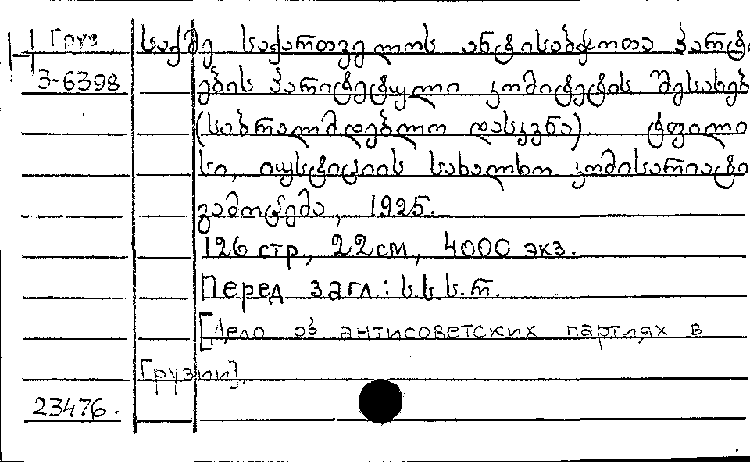 Груз საქმე საქართველოს ანტისაბჭოთა პარტი
3-6398 ების პარიტეტული კომიტეტის შესახებ
(საბრალმდებლო დასკვნა) ტფილი
სი, იუსტიციის სახალხო კომისარიატი
გამოცემა, 1925.
126 стр, 22 см, 4000 экз.
Перед загл.: ს.ს.ს.რ.
[Дело об антисоветских партиях в
Грузии].
23476.